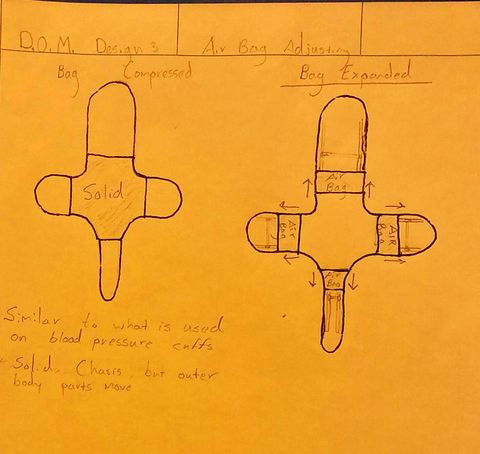 D.O.M. Design 3 Air Bag Adjusting
Bag Compressed
Bag Expanded
Solid
Air Bag
Air Bag
AIR BAG
Air Bag
Similar to what is used
on blood pressure cuffs
- Solid Chasis, but outer
body parts move